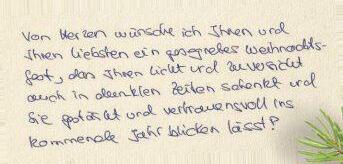 Von Herzen wünsche ich Ihnen und
Ihren Liebsten ein gesegnetes Weihnachts-
fest, das Ihnen Licht und Zuversicht
auch in dunklen Zeiten schenkt und
Sie gestärkt und vertrauensvoll ins
kommende Jahr blicken lässt!